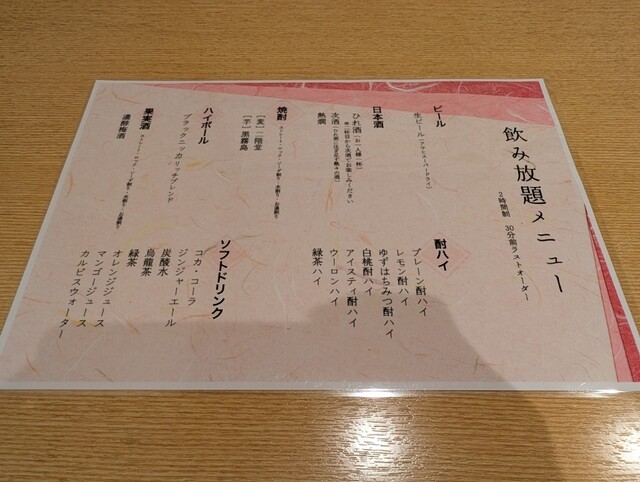 飲み放題メニュー
2時間制 30分前ラストオーダー
ビール
生ビール(アサヒスーパードライ)
日本酒
ひれ酒(お一人様一杯)
次酒(ひれ酒に注ぎ足す熱々の酒)
熱燗
焼酎
[麦]二階堂
[芋]黒霧島
ハイボール
ブラックニッカリッチブレンド
果実酒
濃醇梅酒
酎ハイ
プレーン酎ハイ
レモン酎ハイ
ゆずはちみつ酎ハイ
白桃酎ハイ
アイスティ酎ハイ
ウーロンハイ
緑茶ハイ
ソフトドリンク
コカ・コーラ
ジンジャーエール
炭酸水
烏龍茶
緑茶
オレンジジュース
マンゴージュース
カルピスウォーター